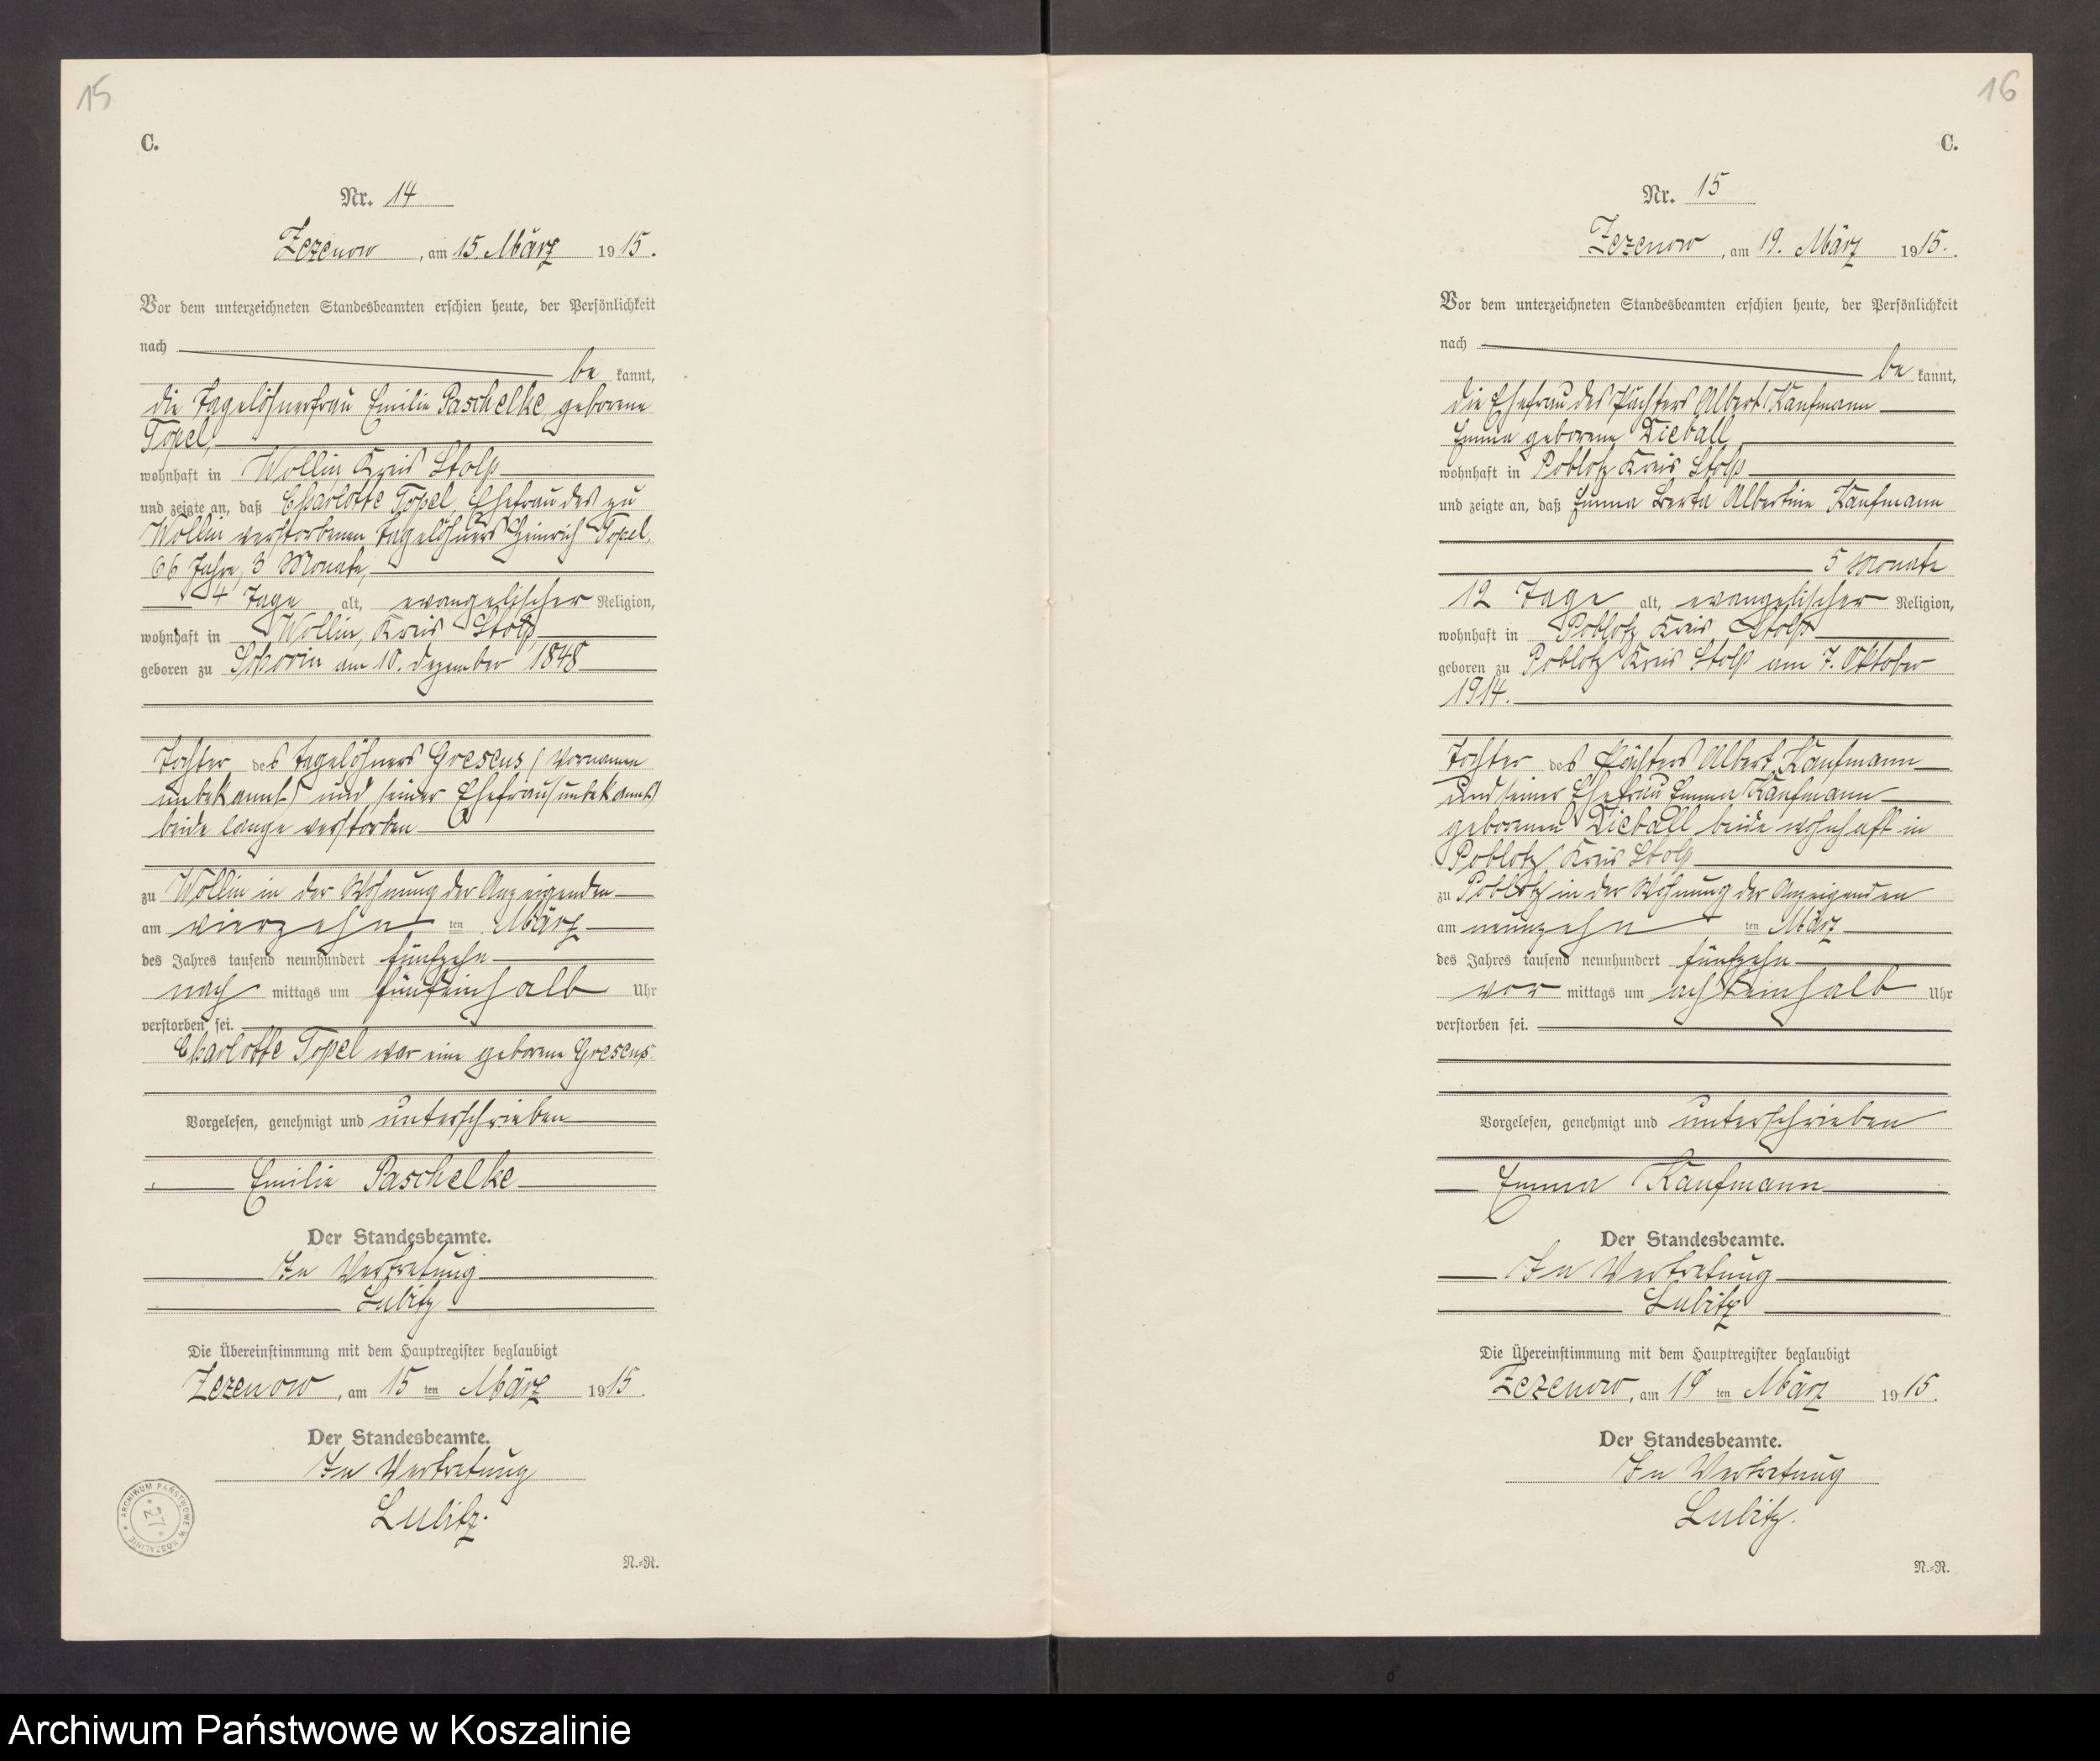 15
C.
Nr. 14
Zezenow, am 15. März 1915.
Vor dem unterzeichneten Standesbeamten erschien heute, der Persönlichkeit
nach
be kannt,
die Tagelöhnerfrau Emilie Paschelke, geborene
Topel,
wohnhaft in Wollin Kreis Stolp
und zeigte an, daß Charlotte Topel, Ehefrau des zu
Wollin verstorbenen Tagelöhners Heinrich Topel,
66 Jahre, 3 Monate,
4 Tage alt, evangelischer Religion,
wohnhaft in Wollin, Kreis Stolp
geboren zu Schorin am 10. Dezember 1848
Tochter des Tagelöhners Gresens (Vornamen
unbekannt) und seiner Ehefrau (unbekannt)
beide lange verstorben
zu Wollin in der Wohnung der Anzeigenden
am vierzehn ten März
des Jahres tausend neunhundert fünfzehn
nach mittags um fünfeinhalb Uhr
verstorben sei.
Charlotte Topel war eine geborene Gresens.
Vorgelesen, genehmigt und unterschrieben
Emilie Paschelke
Der Standesbeamte.
In Vertretung
Lubitz
Die Übereinstimmung mit dem Hauptregister beglaubigt
Zezenow, am 15 ten März 1915.
Der Standesbeamte.
In Vertretung
Lubitz.
ARCHIWUM PAŃSTWOWE W KOSZALINIE
N.=R.
16
C.
Nr. 15
Zezenow, am 19. März 1915.
Vor dem unterzeichneten Standesbeamten erschien heute, der Persönlichkeit
nach
be kannt,
die Ehefrau des Pächters Albert Kaufmann
Emma geborene Dieball
wohnhaft in Poblotz Kreis Stolp
und zeigte an, daß Emma Berta Albertine Kaufmann
5 Monate
12 Tage alt, evangelischer Religion,
wohnhaft in Poblotz Kreis Stolp
geboren zu Poblotz Kreis Stolp am 7. Oktober
1914.
Tochter des Pächters Albert Kaufmann
und seiner Ehefrau Emma Kaufmann
geborenen Dieball beide wohnhaft in
Poblotz Kreis Stolp
zu Poblotz in der Wohnung der Anzeigenden
am neunzehn ten März
des Jahres tausend neunhundert fünfzehn
vor mittags um achteinhalb Uhr
verstorben sei.
Vorgelesen, genehmigt und unterschrieben
Emma Kaufmann
Der Standesbeamte.
In Vertretung
Lubitz
Die Übereinstimmung mit dem Hauptregister beglaubigt
Zezenow, am 19 ten März 1915.
Der Standesbeamte.
In Vertretung
Lubitz.
N.=R.
Archiwum Państwowe w Koszalinie